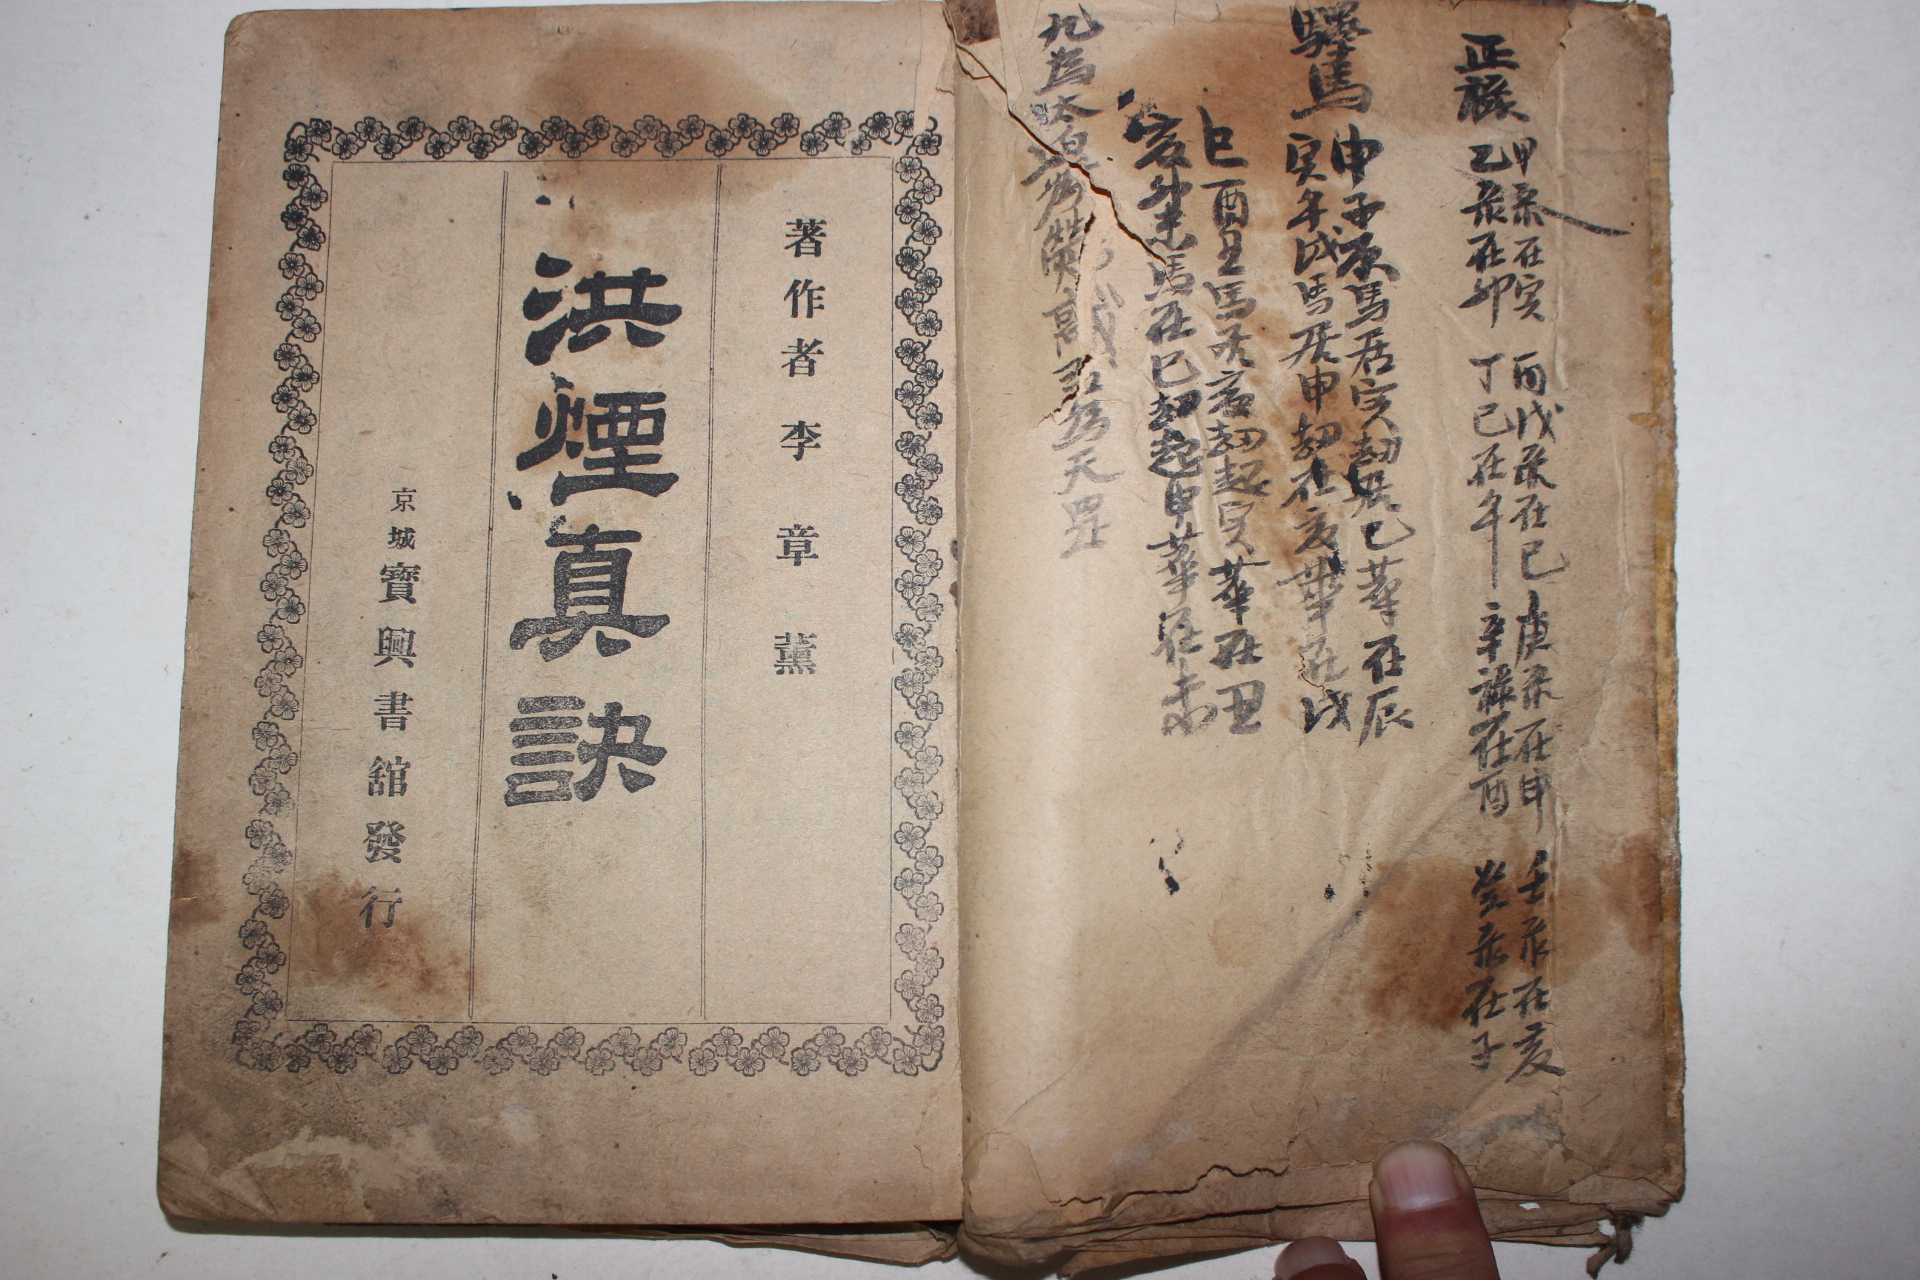 正祿
甲彔在寅 丙戊彔在巳 庚彔在申 壬彔在亥
乙彔在卯 丁巳在午 辛祿在酉 癸彔在子
驛馬
申子辰馬居寅劫巳華在辰
寅午戌馬居申劫在亥華在戌
巳酉丑馬居亥劫起寅華在丑
亥卯未馬在巳劫起申華在未
九爲太
天罡
著作者李章薰
洪煙眞訣
京城寶興書舘發行